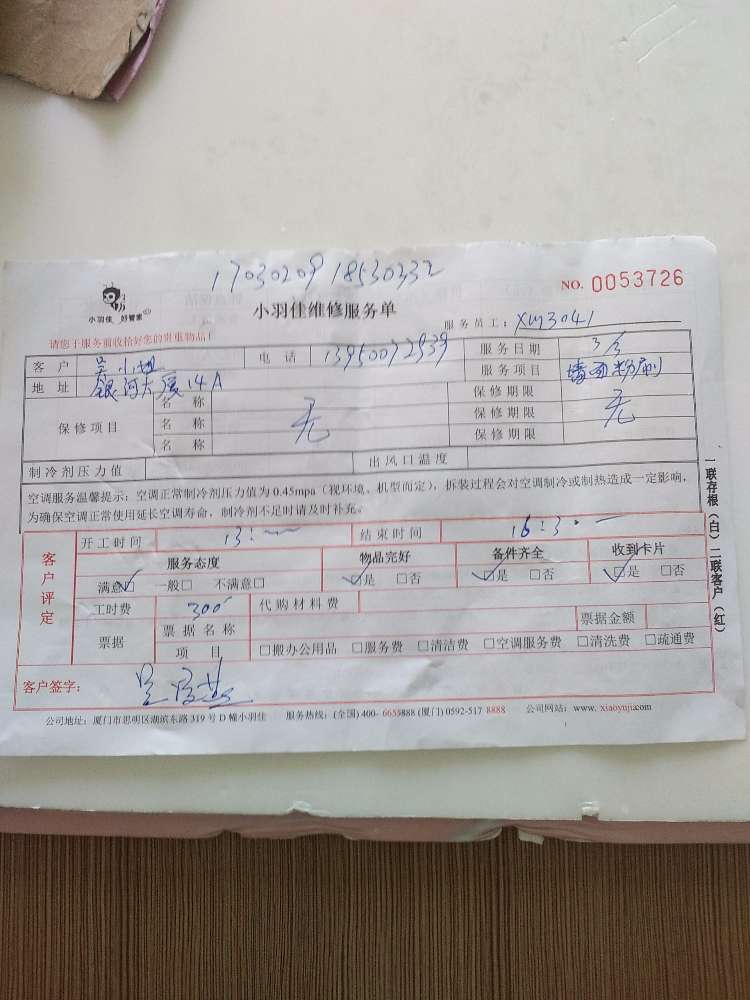 17030209 18530332
小羽佳 好管家
小羽佳维修服务单
NO. 0053726
请您于服务前收拾好您的贵重物品!
服务员工: XM3041
客户 吴小姐 电话 13950072939 服务日期 3/3
地址 银河大厦14A 服务项目 墙面粉刷
保修项目 名称 无 保修期限 无
名称 保修期限
名称 保修期限
制冷剂压力值 出风口温度
空调服务温馨提示: 空调正常制冷剂压力值为 0.45mpa (视环境、机型而定), 拆装过程会对空调制冷或制热造成一定影响,
为确保空调正常使用延长空调寿命, 制冷剂不足时请及时补充。
开工时间 13: 结束时间 16:3
客户评定
服务态度 物品完好 备件齐全 收到卡片
满意☑ 一般□ 不满意□ ☑是 □否 ☑是 □否 ☑是 □否
工时费 300 代购材料费
票据 票据名称 票据金额
项目 □搬办公用品 □服务费 □清洁费 □空调服务费 □清洗费 □疏通费
客户签字:
公司地址: 厦门市思明区湖滨东路 319 号 D 幢小羽佳 服务热线: (全国) 400- 6655888 (厦门) 0592-517 8888 公司网站: www. xiaoyujia.com
一联存根(白) 二联客户(红)